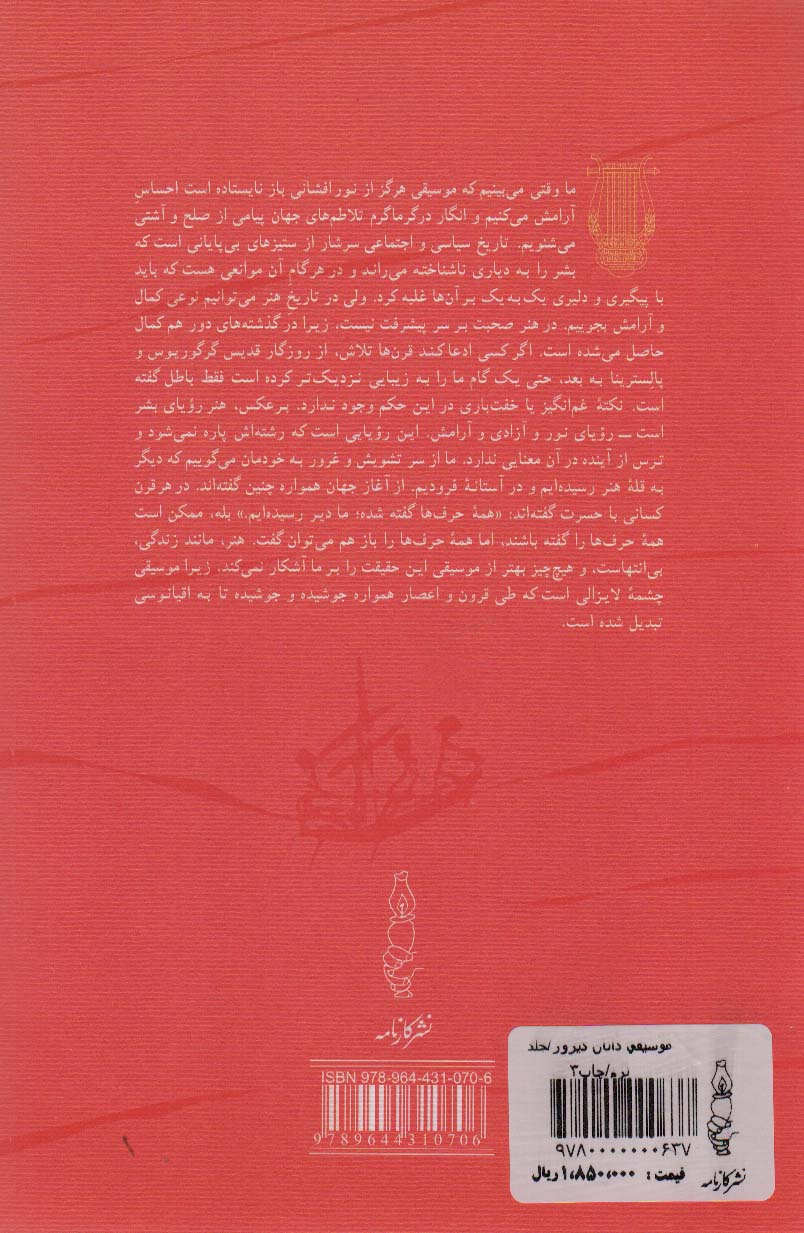 ما وقتی می‌بینیم که موسیقی هرگز از نورافشانی باز نایستاده است احساسِ
آرامش می‌کنیم و انگار درگرماگرم تلاطم‌های جهان پیامی از صلح و آشتی
می‌شنویم. تاریخ سیاسی و اجتماعی سرشار از ستیزهای بی‌پایانی است که
بشر را به دیاری ناشناخته می‌راند و در هرگامِ آن موانعی هست که باید
با پیگیری و دلیری یک‌به‌یک بر آن‌ها غلبه کرد. ولی در تاریخِ هنر می‌توانیم نوعی کمال
و آرامش بجوییم. در هنر صحبت بر سر پیشرفت نیست، زیرا در گذشته‌های دور هم کمال
حاصل می‌شده است. اگر کسی ادعا کند قرن‌ها تلاش، از روزگار قدیس گرگوریوس و
پالِسترینا به بعد، حتی یک گام ما را به زیبایی نزدیک‌تر کرده است فقط باطل گفته
است. نکتهٔ غم‌انگیز یا خفت‌باری در این حکم وجود ندارد. برعکس، هنر رؤیای بشر
است ــ رؤیای نور و آزادی و آرامش. این رؤیایی است که رشته‌اش پاره نمی‌شود و
ترس از آینده در آن معنایی ندارد. ما از سر تشویش و غرور به خودمان می‌گوییم که دیگر
به قلهٔ هنر رسیده‌ایم و در آستانهٔ فرودیم. از آغاز جهان همواره چنین گفته‌اند. در هر قرن
کسانی با حسرت گفته‌اند: «همهٔ حرف‌ها گفته شده؛ ما دیر رسیده‌ایم.» بله، ممکن است
همهٔ حرف‌ها را گفته باشند، اما همهٔ حرف‌ها را باز هم می‌توان گفت. هنر، مانند زندگی،
بی‌انتهاست، و هیچ‌چیز بهتر از موسیقی این حقیقت را بر ما آشکار نمی‌کند. زیرا موسیقی
چشمهٔ لایزالی است که طی قرون و اعصار همواره جوشیده و جوشیده تا به اقیانوسی
تبدیل شده است.
نشر کارنامه
ISBN 978-964-431-070-6
9789644310706
موسیقی دانان دیروز/جلد
نرم/چاپ۳
۹۷۸۰۰۰۰۰۰۰۶۳۷
قیمت : ۱,۸۵۰,۰۰۰ ریال
نشر کارنامه